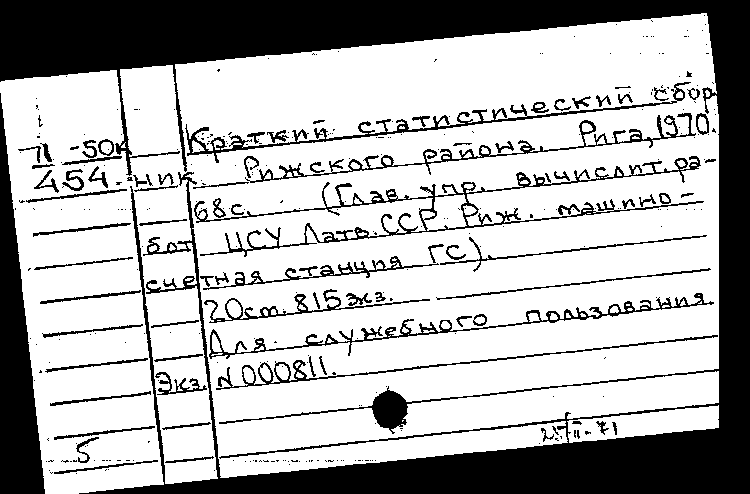 П -50к Краткий статистический сбор
454 ник Рижского района. Рига, 1970.
68с. (Глав. упр. вычислит. ра-
бот ЦСУ Латв. ССР. Риж. машино-
счетная станция ГС).
20см. 815экз.
Для служебного пользования.
Экз. N 000811.
5
25/II-71